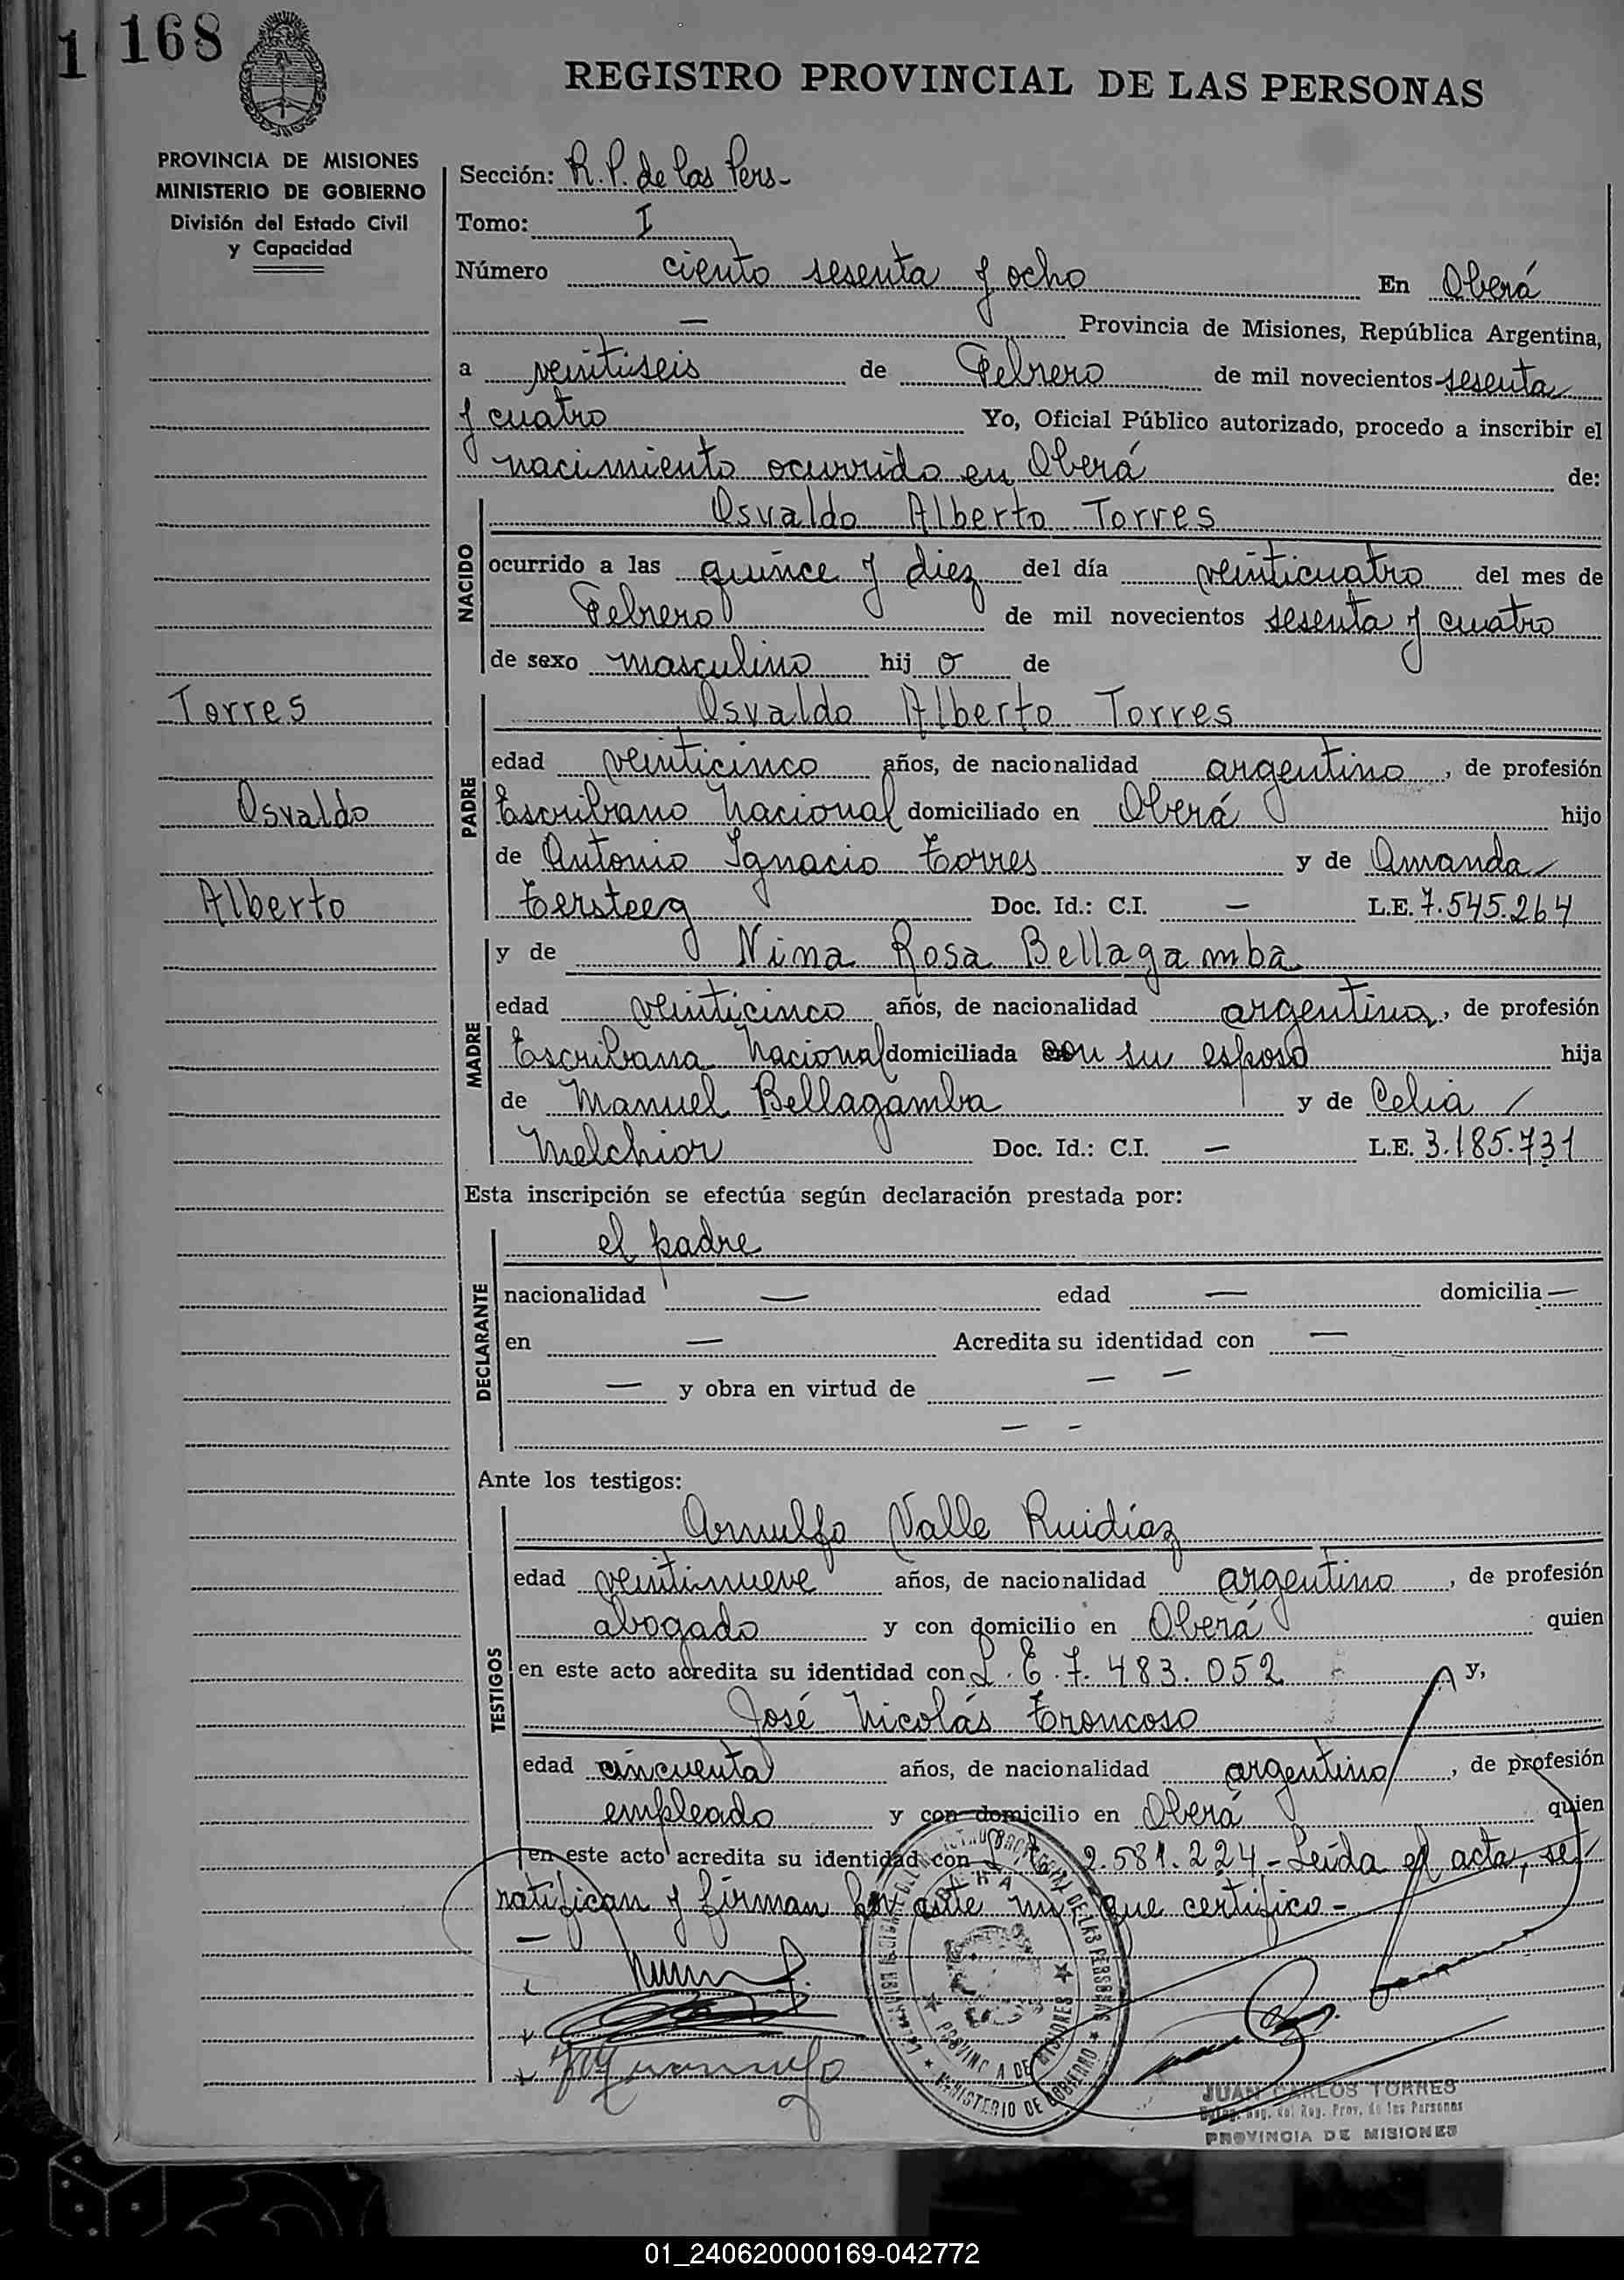 1 168
REGISTRO PROVINCIAL DE LAS PERSONAS
PROVINCIA DE MISIONES
MINISTERIO DE GOBIERNO
División del Estado Civil
y Capacidad
Sección: R. P. de las Pers-
Tomo: I
Número ciento sesenta y ocho En Oberá
— Provincia de Misiones, República Argentina,
a veintiseis de Febrero de mil novecientos sesenta
y cuatro Yo, Oficial Público autorizado, procedo a inscribir el
nacimiento ocurrido en Oberá de:
NACIDO
Osvaldo Alberto Torres
ocurrido a las quince y diez del día veinticuatro del mes de
Febrero de mil novecientos sesenta y cuatro
de sexo masculino hij o de
Torres
Osvaldo
Alberto
PADRE
Osvaldo Alberto Torres
edad veinticinco años, de nacionalidad argentino, de profesión
Escribano Nacional domiciliado en Oberá hijo
de Antonio Ignacio Torres y de Amanda
Tersteeg Doc. Id.: C.I. — L.E. 7.545.264
MADRE
y de Nima Rosa Bellagamba
edad veinticinco años, de nacionalidad argentina, de profesión
Escribana Nacional domiciliada con su esposo hija
de Manuel Bellagamba y de Celia /
Melchior Doc. Id.: C.I. — L.E. 3.185.731
Esta inscripción se efectúa según declaración prestada por:
DECLARANTE
el padre
nacionalidad — edad — domicilia —
en — Acredita su identidad con —
— y obra en virtud de — —
— -
Ante los testigos:
TESTIGOS
Arnulfo Valle Ruidíaz
edad veintinueve años, de nacionalidad argentino, de profesión
abogado y con domicilio en Oberá quien
en este acto acredita su identidad con L. E. 7.483.052 y,
José Nicolás Troncoso
edad cincuenta años, de nacionalidad argentino, de profesión
empleado y con domicilio en Oberá quien
en este acto acredita su identidad con L. E. 2.581.224 - Leída el acta, se
ratifican y firman por ante mi que certifico -
—
PROVINCIA DE MISIONES
MINISTERIO DE GOBIERNO
JUAN CARLOS TORRES
Reg. del Reg. Prov. de las Personas
PROVINCIA DE MISIONES
01_240620000169-042772